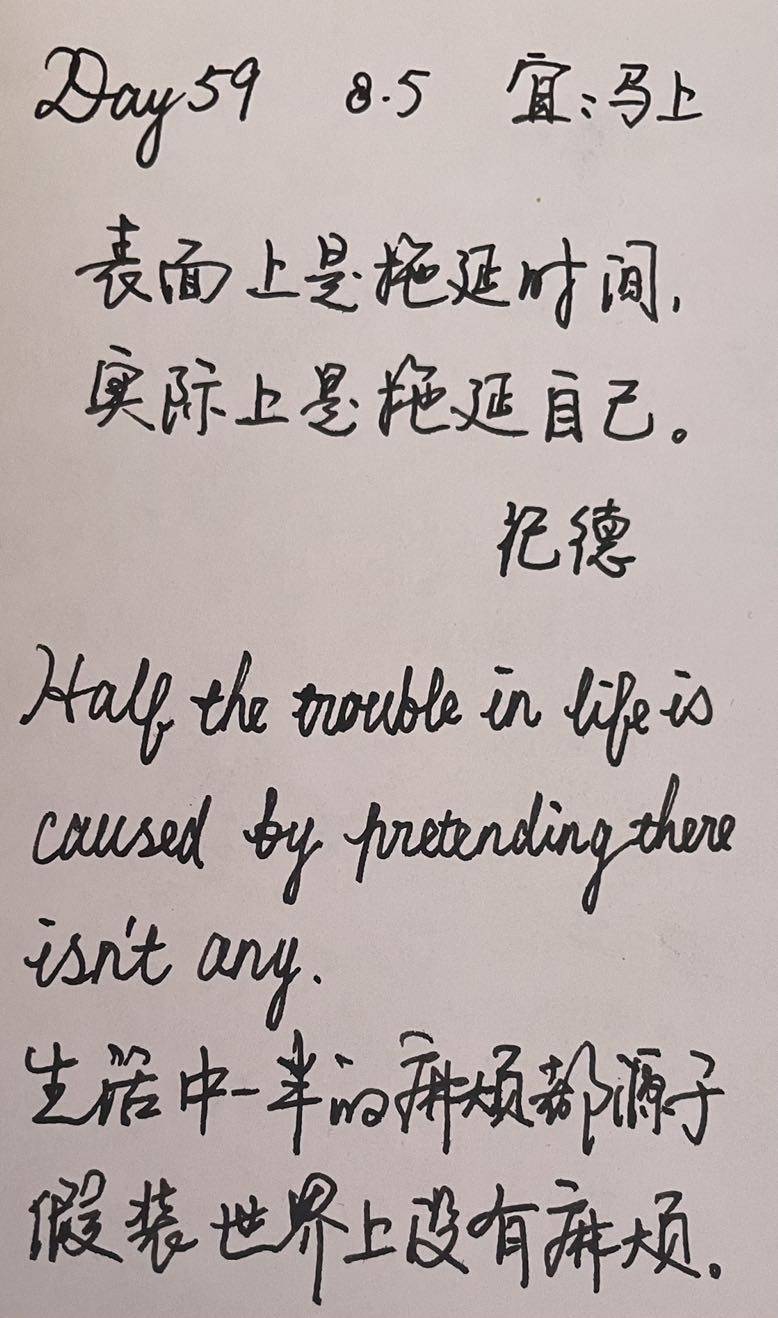 Day 59 8.5 宜:马上
表面上是拖延时间,
实际上是拖延自己。
纪德
Half the trouble in life is
caused by pretending there
isn't any.
生活中一半的麻烦都源于
假装世界上没有麻烦。